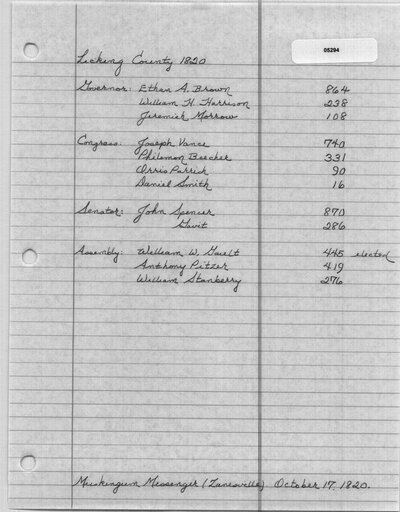 05294
Licking County 1820
Governor: Ethan A. Brown 864
William H. Harrison 238
Jeremiah Morrow 108
Congress: Joseph Vance 740
Philemon Beecher 331
Orris Parrish 90
Daniel Smith 16
Senator: John Spencer 870
Gavit 286
Assembly: William W. Gault 445 elected
Anthony Pitzer 419
William Stanberry 276
Muskingum Messenger (Zanesville) October 17, 1820.